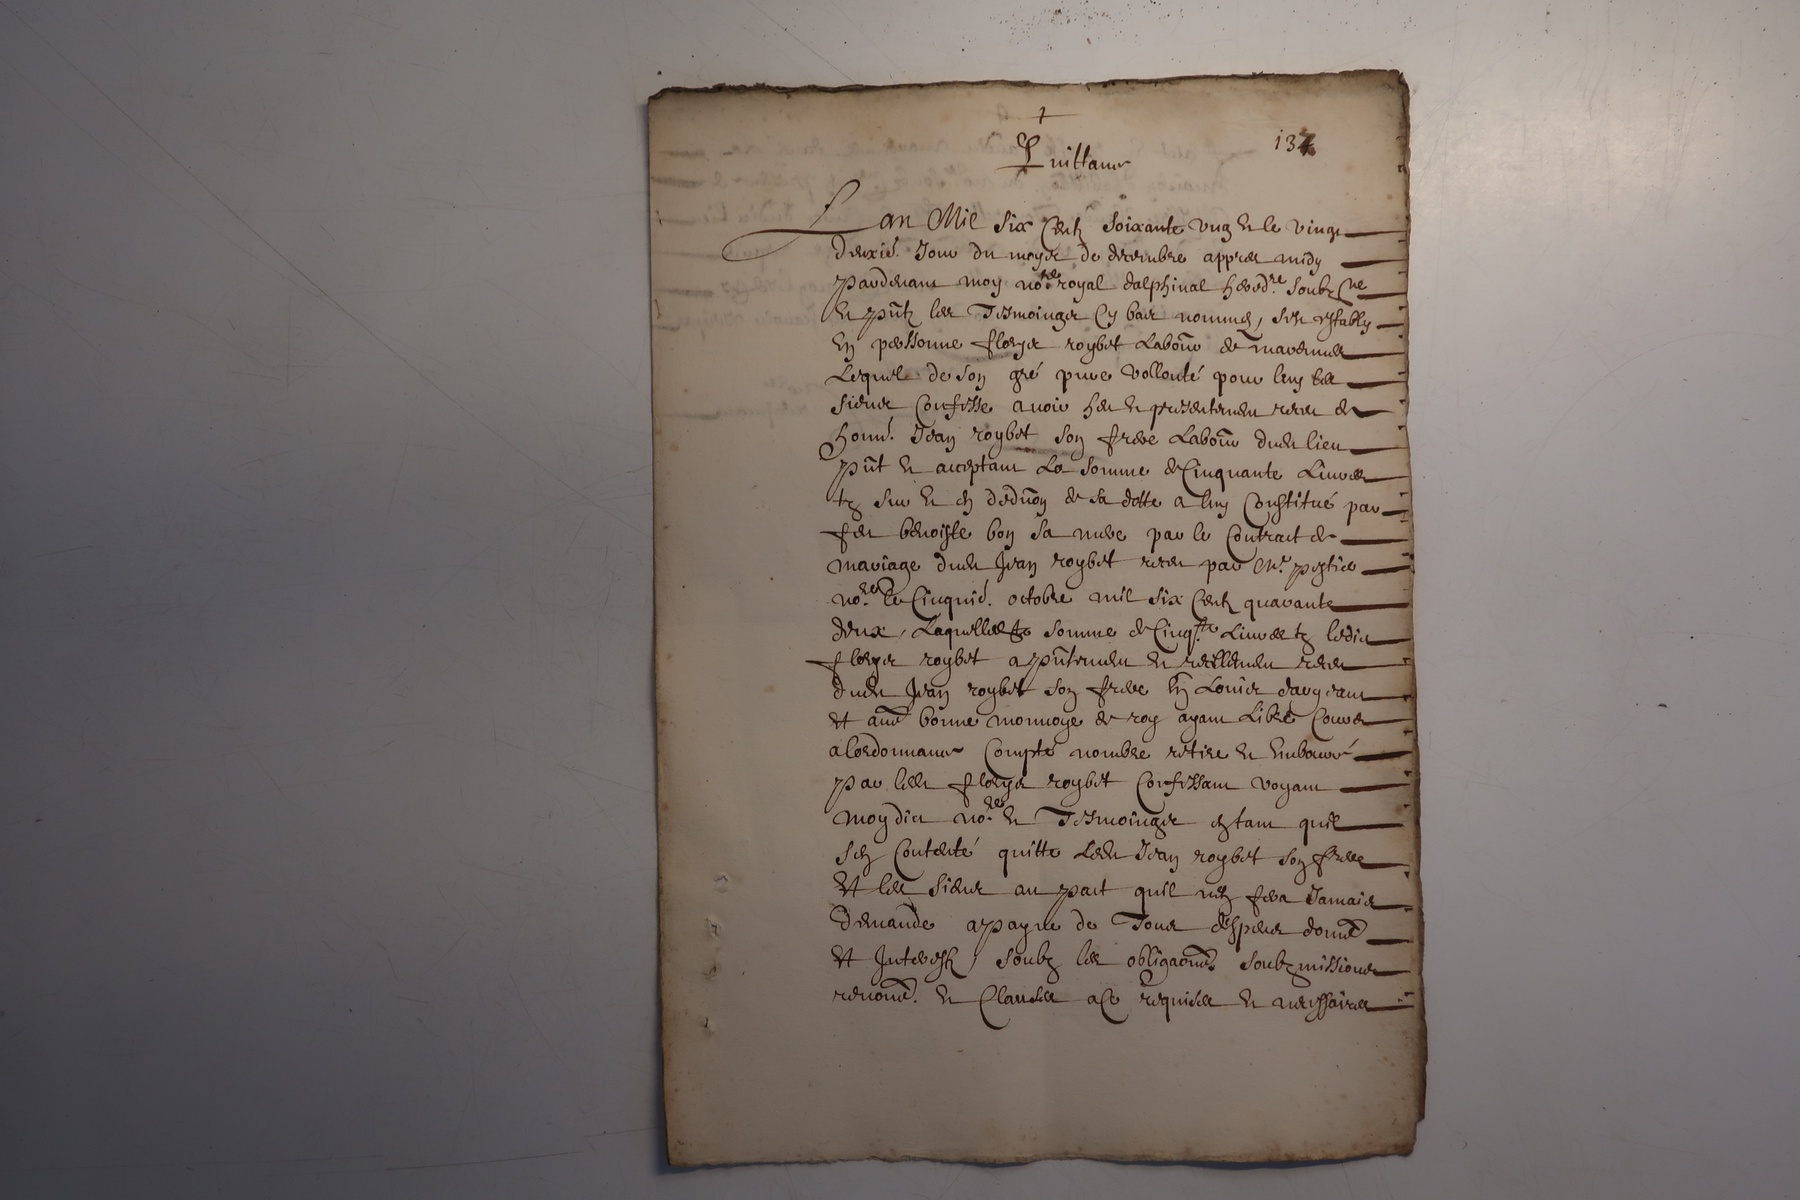 137
Quittance
Lan Mil six centz soixante ung et le vingt
deuxie. Jour du moys de decembre appres midy
pardevant moy no.re royal dalphinal hered.re soubz.ne
et pntz les Tesmoingz cy bas nommes, sest estably
en personne fleurys roybet Labour de
Lequel de son gré pure vollonté pour luy les
siens Confesse avoir heu et presentement receu de
honn. Jean roybet son frere Labour dudt lieu
pnt et acceptant La somme de Cinquante Livres
tz sur et en deduon de sa dotte a luy Constitué par
feu benoiste bon sa mere par le Contract de
mariage dudt Jean roybet receu par Me.
no.re le Cinquie. octobre mil six centz quarante
deux, Laquelle somme de Cinq.te Livres tz ledict
fleurys roybet a pntement et reellement receu
dudt Jean roybet son frere En Louis dargent
et aue bonne monnoye de roy ayant Libre Cours
a lordonnance Compté nombre retire et Embourcé
par ledt fleurys roybet Confessant voyant
moydict no.re et Tesmoingz estant quil
sen Contente quitte Ledt Jean roybet son frere
et les siens au pact quil nen fera Jamais
demande a payne de Tous despens domes
et Interestz, soubz les obligaones. soubzmissions
renones. et Clauses a ce requises et necessaires